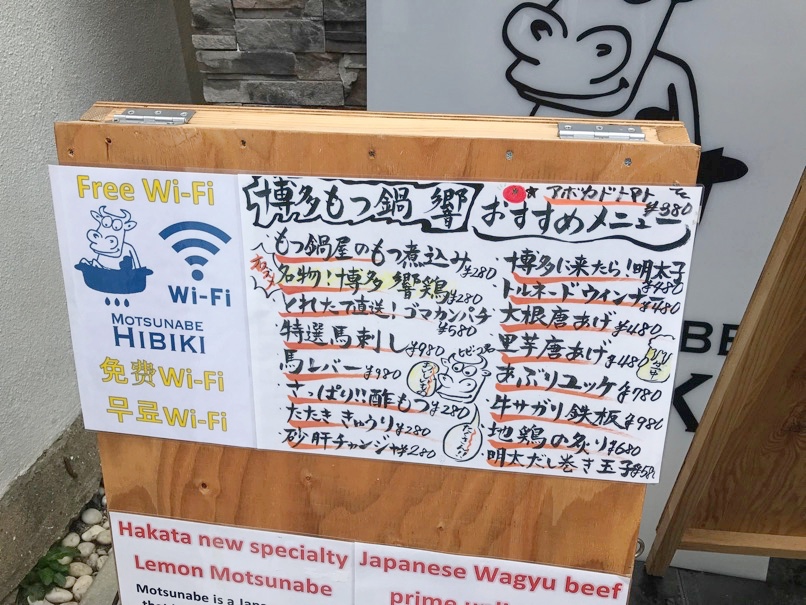 Free Wi-Fi
Wi-Fi
MOTSUNABE
HIBIKI
免费Wi-Fi
무료Wi-Fi
博多もつ鍋 響
おすすめメニュー
アボカドトマト
¥380
もつ鍋屋のもつ煮込み ¥280
名物!博多響鶏 ¥280
とれたて直送!ゴマカンパチ ¥580
特選馬刺し ¥980
馬レバー ¥980
さっぱり!!酢もつ ¥280
たたききゅうり ¥280
砂肝チャンジャ ¥280
博多に来たら!明太子 ¥480
トルネードウィンナー ¥480
大根唐あげ ¥480
里芋唐あげ ¥480
あぶりユッケ ¥780
牛サガリ鉄板 ¥980
地鶏の炙り ¥680
明太だし巻き玉子
Hakata new specialty
Lemon Motsunabe
Motsunabe is a
Japanese Wagyu beef